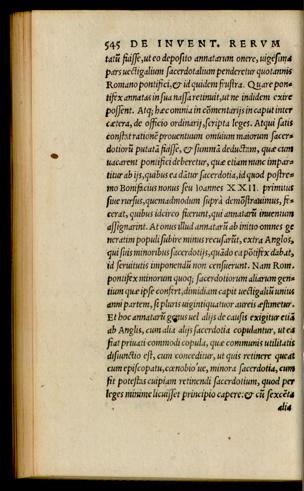 545 DE INVENT. RERVM
tatũ fuisse, ut eo deposito annatarum onere, uigesima
pars uectigalium sacerdotalium penderetur quotannis
Romano pontifici, & id quidem frustra. Quare pon=
tifex annatas in sua nassa retinuit, ut ne inibidem exire
possent. Atq; hæc omnia in cõmentarijs in caput inter
cætera, de officio ordinarij, scripta leget. Atqui satis
constat rationẽ prouentuum omnium maiorum sacer=
dotiorũ putatã fuisse, & summã deductam, quæ cum
uacarent pontifici deberetur, quæ etiam nunc impar=
titur ab ijs, quibus ea dãtur sacerdotia, id quod postre=
mo Bonificius nonus seu Ioannes XXII. primitus
siue rursus, quemadmodum suprà demõstrauimus, fe=
cerat, quibus idcirco fuerunt, qui annatarũ inuentum
assignarint. At onus illud annatarũ ab initio omnes ge
neratim populi subire minus recusarũt, extra Anglos,
qui suis minoribus sacerdotijs, quãdo ea põtifex dabat,
id seruitutis imponendũ non censuerunt. Nam Rom.
pontifex minorum quoq; sacerdotiorum aliarum gen=
tium quæ ipse confert, dimidiam capit uectigaliũ unius
anni partem, si pluris uigintiquatuor aureis æstimetur.
Et hoc annatarũ genus uel alijs de causis exigitur etiã
ab Anglis, cum alia alijs sacerdotia copulantur, ut ea
fiat priuati commodi copula, quæ communis utilitatis
disiunctio est, cum conceditur, ut quis retinere queat
cum episcopatu, cœnobio ue, minora sacerdotia, cum
fit potestas cuipiam retinendi sacerdotium, quod per
leges minime licuisset principio capere: & cũ sexcẽta
alia